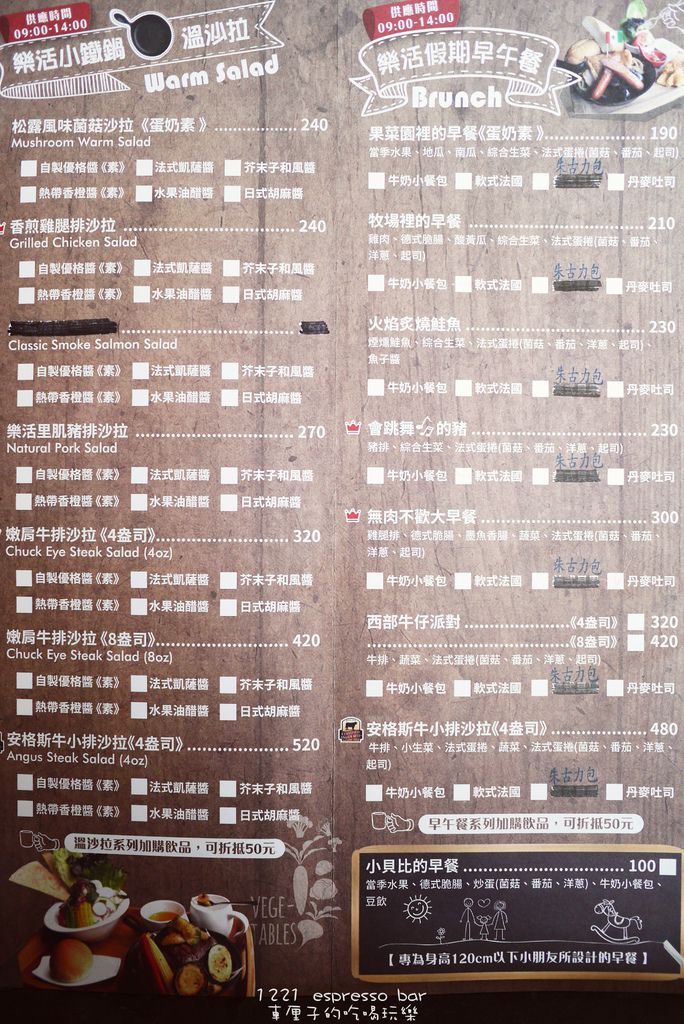 供應時間
09:00-14:00
樂活小鐵鍋 溫沙拉
Warm Salad
松露風味菌菇沙拉《蛋奶素》 240
Mushroom Warm Salad
自製優格醬《素》 法式凱薩醬 芥末子和風醬
熱帶香橙醬《素》 水果油醋醬 日式胡麻醬
香煎雞腿排沙拉 240
Grilled Chicken Salad
自製優格醬《素》 法式凱薩醬 芥末子和風醬
熱帶香橙醬《素》 水果油醋醬 日式胡麻醬
Classic Smoke Salmon Salad
自製優格醬《素》 法式凱薩醬 芥末子和風醬
熱帶香橙醬《素》 水果油醋醬 日式胡麻醬
樂活里肌豬排沙拉 270
Natural Pork Salad
自製優格醬《素》 法式凱薩醬 芥末子和風醬
熱帶香橙醬《素》 水果油醋醬 日式胡麻醬
嫩肩牛排沙拉《4盎司》 320
Chuck Eye Steak Salad (4oz)
自製優格醬《素》 法式凱薩醬 芥末子和風醬
熱帶香橙醬《素》 水果油醋醬 日式胡麻醬
嫩肩牛排沙拉《8盎司》 420
Chuck Eye Steak Salad (8oz)
自製優格醬《素》 法式凱薩醬 芥末子和風醬
熱帶香橙醬《素》 水果油醋醬 日式胡麻醬
安格斯牛小排沙拉《4盎司》 520
Angus Steak Salad (4oz)
自製優格醬《素》 法式凱薩醬 芥末子和風醬
熱帶香橙醬《素》 水果油醋醬 日式胡麻醬
溫沙拉系列加購飲品，可折抵50元
VEGE-
TABLES
供應時間
09:00-14:00
樂活假期早午餐
Brunch
果菜園裡的早餐《蛋奶素》 190
當季水果、地瓜、南瓜、綜合生菜、法式蛋捲(菌菇、番茄、起司)
朱古力包
牛奶小餐包 軟式法國 丹麥吐司
牧場裡的早餐 210
雞肉、德式脆腸、酸黃瓜、綜合生菜、法式蛋捲(菌菇、番茄、
洋蔥、起司)
朱古力包
牛奶小餐包 軟式法國 丹麥吐司
火焰炙燒鮭魚 230
煙燻鮭魚、綜合生菜、法式蛋捲(菌菇、番茄、洋蔥、起司)、
魚子醬
朱古力包
牛奶小餐包 軟式法國 丹麥吐司
會跳舞的豬 230
豬排、綜合生菜、法式蛋捲(菌菇、番茄、洋蔥、起司)
朱古力包
牛奶小餐包 軟式法國 丹麥吐司
無肉不歡大早餐 300
雞腿排、德式脆腸、墨魚香腸、蔬菜、法式蛋捲(菌菇、番茄、
洋蔥、起司)
朱古力包
牛奶小餐包 軟式法國 丹麥吐司
西部牛仔派對 《4盎司》 320
《8盎司》 420
牛排、蔬菜、法式蛋捲(菌菇、番茄、洋蔥、起司)
朱古力包
牛奶小餐包 軟式法國 丹麥吐司
安格斯牛小排沙拉《4盎司》 480
牛排、小生菜、法式蛋捲、蔬菜、法式蛋捲(菌菇、番茄、洋蔥、
起司)
朱古力包
牛奶小餐包 軟式法國 丹麥吐司
早午餐系列加購飲品，可折抵50元
小貝比的早餐 100
當季水果、德式脆腸、炒蛋(菌菇、番茄、洋蔥)、牛奶小餐包、
豆飲
【 專為身高120cm以下小朋友所設計的早餐 】
1221 espresso bar
車厘子的吃喝玩樂